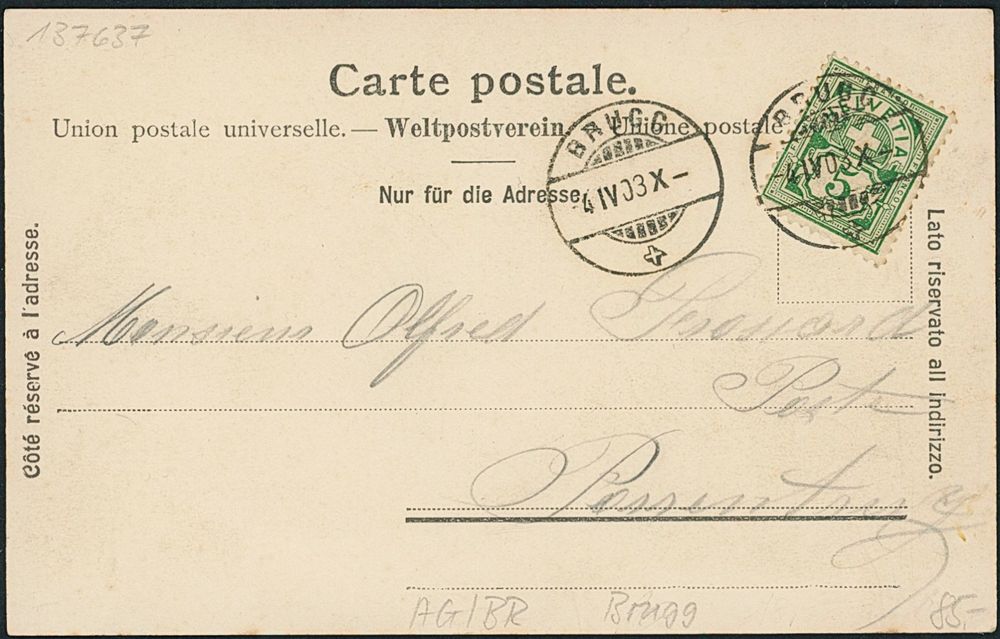 137637
Carte postale.
Union postale universelle. — Weltpostverein. Unione postale
Nur für die Adresse.
BRUGG
-4 IV 03 X-
BRUGG
-4 IV 03 X-
HELVETIA
FRANCO
5
Côté réservé à l'adresse.
Lato riservato all indirizzo.
Monsieur Alfred
Poste
Porrentruy
AG/BR Brugg 85.-